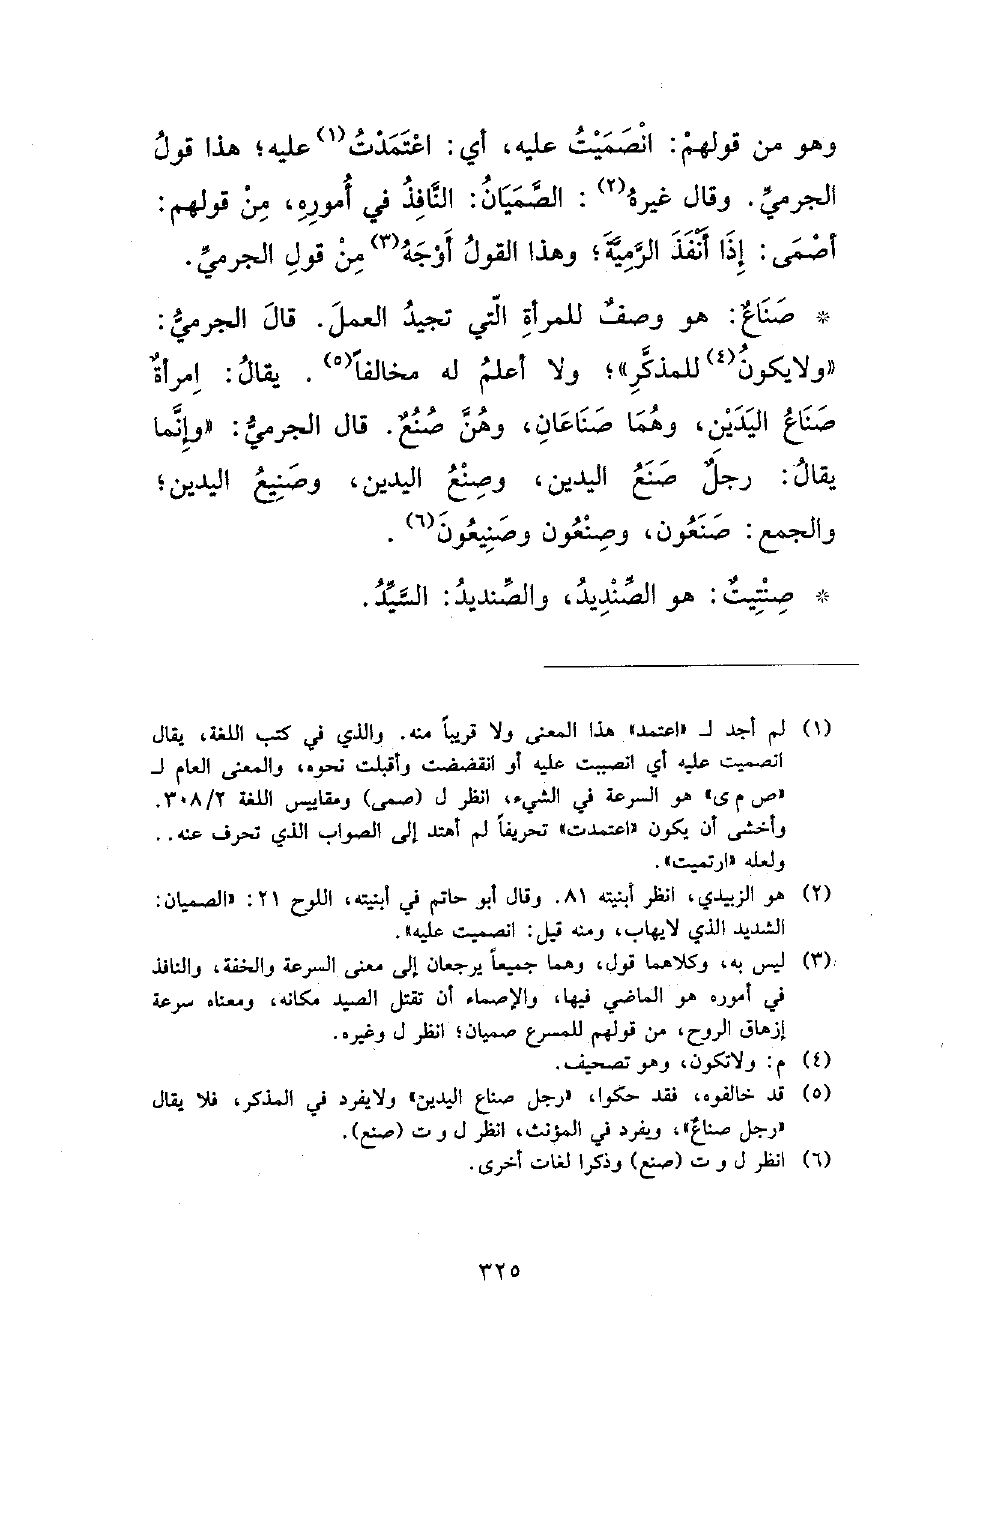 وهو من قولهمْ: انْصَمَيْتُ عليه، أي: اعْتَمَدْتُ(١) عليه؛ هذا قولُ
الجرميِّ. وقال غيرهُ(٢) : الصَّمَيَانُ: النَّافِذُ في أُمورِهِ، مِنْ قولهم:
أَصْمَى: إِذَا أَنْفَذَ الرَّمِيَّةَ؛ وهذا القولُ أَوْجَهُ(٣) مِنْ قولِ الجرميِّ.
* صَنَاعٌ: هو وصفٌ للمرأةِ الّتي تجيدُ العملَ. قالَ الجرميُّ:
«ولايكونُ(٤) للمذكَّرِ»؛ ولا أعلمُ له مخالفاً(٥) . يقالُ: اِمرأةٌ
صَنَاعُ اليَدَيْنِ، وهُمَا صَنَاعَانِ، وهُنَّ صُنُعٌ. قال الجرميُّ: «وإِنَّما
يقالُ: رجلٌ صَنَعُ اليدين، وصِنْعُ اليدين، وصَنِيعُ اليدين؛
والجمع: صَنَعُون، وصِنْعُون وصَنِيعُونَ(٦) .
* صِنْتِيتٌ: هو الصِّنْدِيدُ، والصِّنديدُ: السَّيِّدُ.
(١) لم أجد لـ «اعتمد» هذا المعنى ولا قريباً منه. والذي في كتب اللغة، يقال
انصميت عليه أي انصببت عليه أو انقضضت وأقبلت نحوه، والمعنى العام لـ
«ص م ى» هو السرعة في الشيء، انظر ل (صمى) ومقاييس اللغة ٣٠٨/٢.
وأخشى أن يكون «اعتمدت» تحريفاً لم أهتد إلى الصواب الذي تحرف عنه..
ولعله «ارتميت».
(٢) هو الزبيدي، انظر أبنيته ٨١. وقال أبو حاتم في أبنيته، اللوح ٢١: «الصميان:
الشديد الذي لايهاب، ومنه قيل: انصميت عليه».
(٣) ليس به، وكلاهما قول، وهما جميعاً يرجعان إلى معنى السرعة والخفة، والنافذ
في أموره هو الماضي فيها، والإصماء أن تقتل الصيد مكانه، ومعناه سرعة
إزهاق الروح، من قولهم للمسرع صميان؛ انظر ل وغيره.
(٤) م: ولاتكون، وهو تصحيف.
(٥) قد خالفوه، فقد حكوا، «رجل صناع اليدين» ولايفرد في المذكر، فلا يقال
«رجل صناعٌ»، ويفرد في المؤنث، انظر ل و ت (صنع).
(٦) انظر ل و ت (صنع) وذكرا لغات أخرى.
٣٢٥